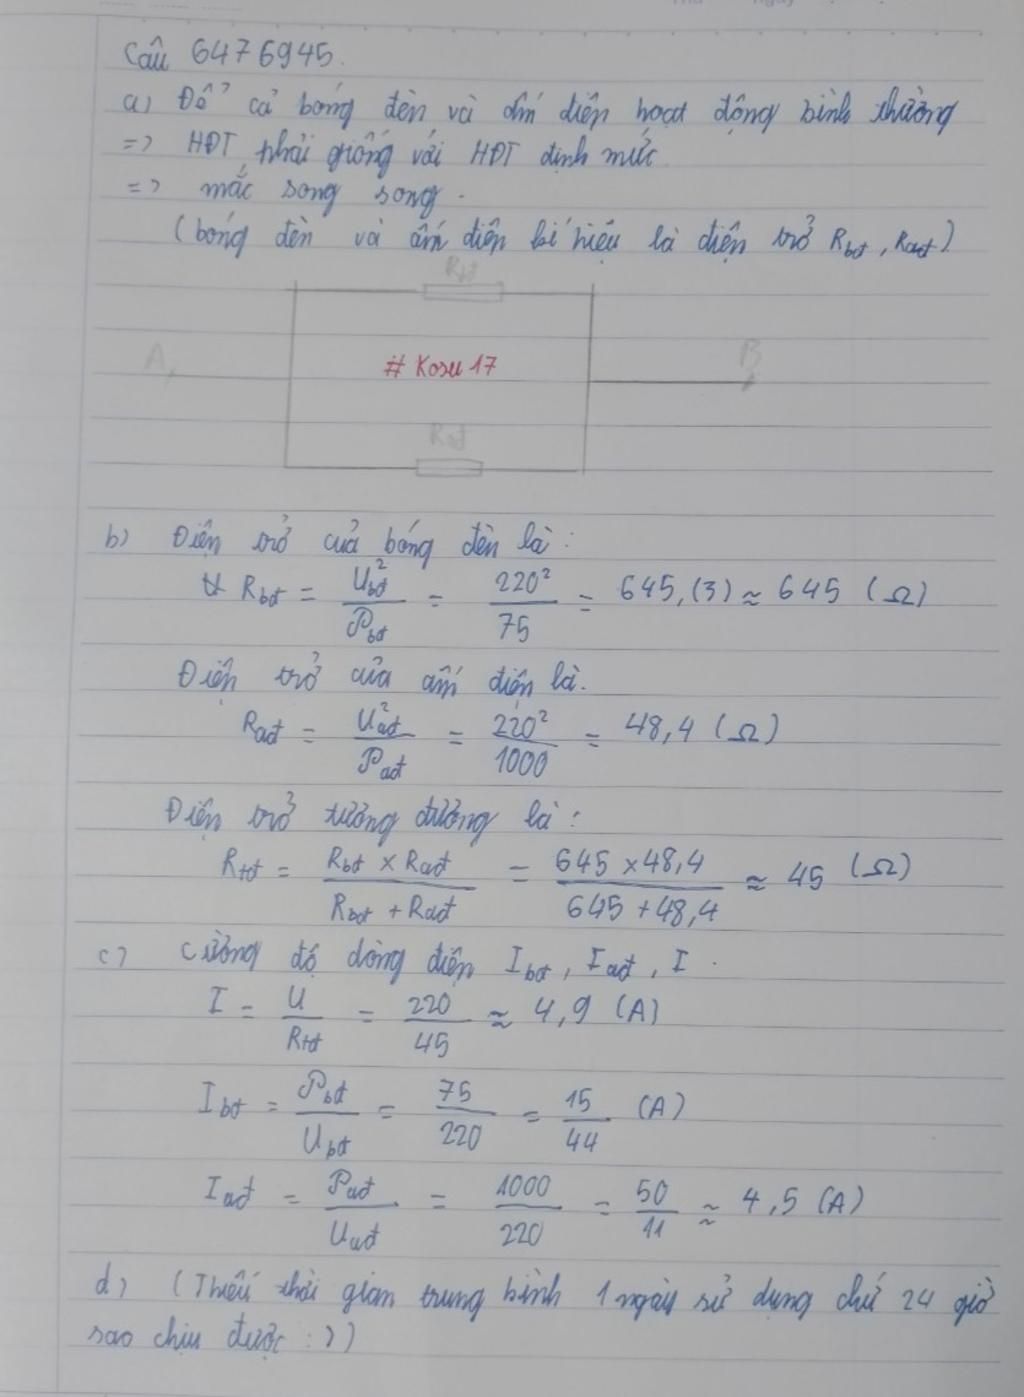 Câu 6476945.
a) Để cả bóng đèn và ấm điện hoạt động bình thường
=> HĐT phải giống với HĐT định mức
=> mắc song song.
(bóng đèn và ấm điện kí hiệu là điện trở Rbđ, Rađ)
Rbđ
A
# Kosu 17
B
Rađ
b) Điện trở của bóng đèn là:
Rbđ = U²bđ / 𝒫bđ = 220² / 75 = 645,(3) ≈ 645 (Ω)
Điện trở của ấm điện là.
Rađ = U²ađ / 𝒫ađ = 220² / 1000 = 48,4 (Ω)
Điện trở tương đương là:
Rtđ = Rbđ × Rađ / Rbđ + Rađ = 645 × 48,4 / 645 + 48,4 ≈ 45 (Ω)
c) Cường độ dòng điện Ibđ, Iađ, I.
I = U / Rtđ = 220 / 45 ≈ 4,9 (A)
Ibđ = 𝒫bđ / Ubđ = 75 / 220 = 15 / 44 (A)
Iađ = 𝒫ađ / Uađ = 1000 / 220 = 50 / 11 ≈ 4,5 (A)
d) (Thiếu thời gian trung bình 1 ngày sử dụng chứ 24 giờ
sao chịu được :))